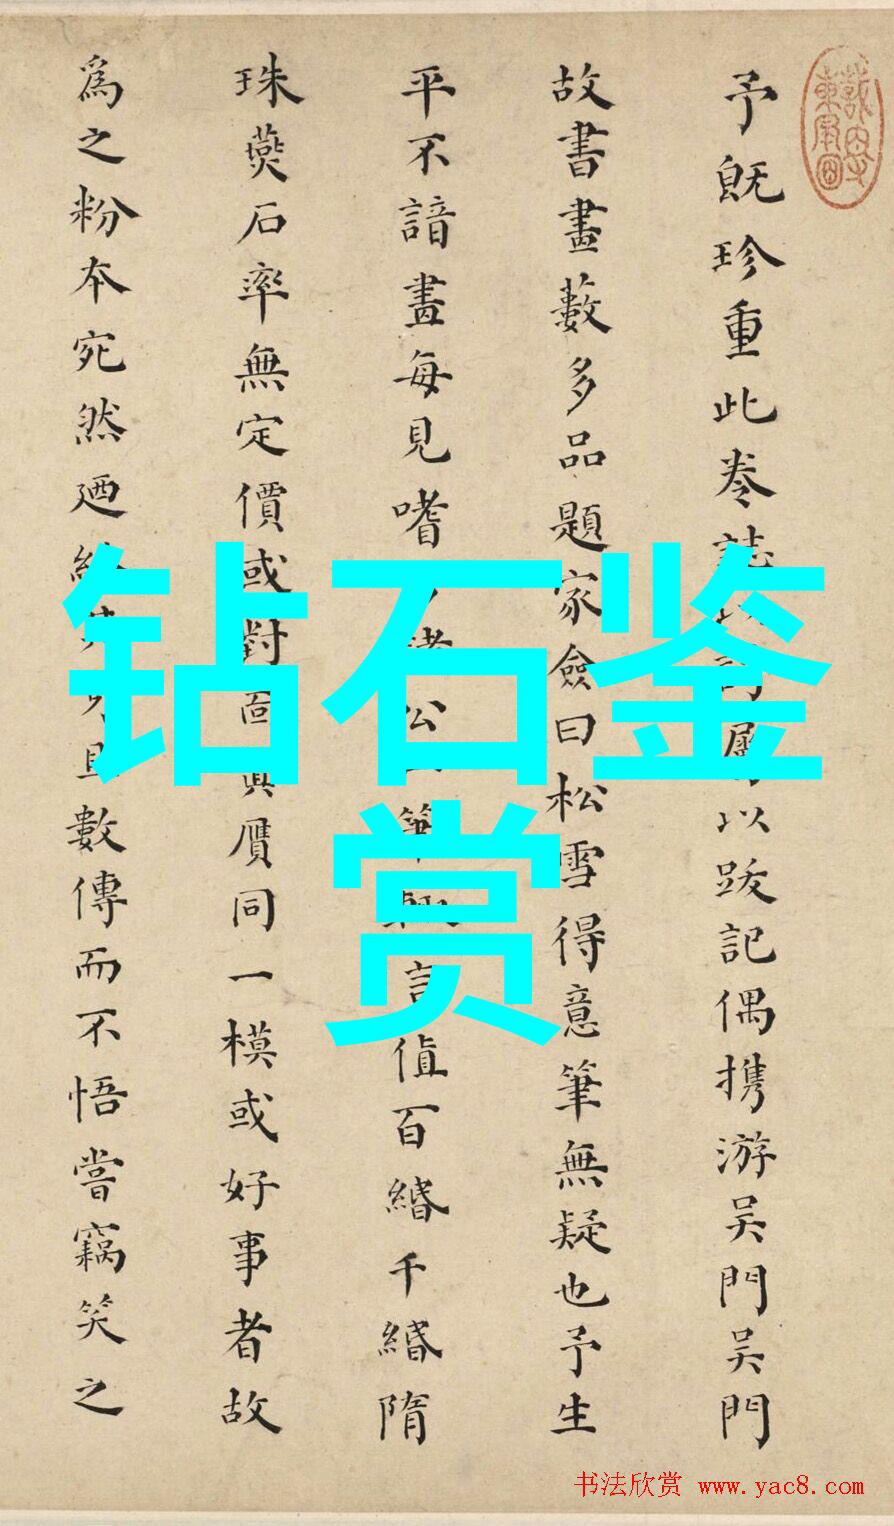 予既珍重此卷誌以以跋記偶攜游吴門吴門
故書畫藪多品題家僉曰松雪得意筆無疑也予生
平不諳畫每見嗜公言值百緡千緡隋
珠燕石率無定價或對面真贋同一模或好事者故
為之粉本宛然迺且數傳而不悟嘗竊笑之
钻石鉴
赏
书法欣赏 www.yac8.com